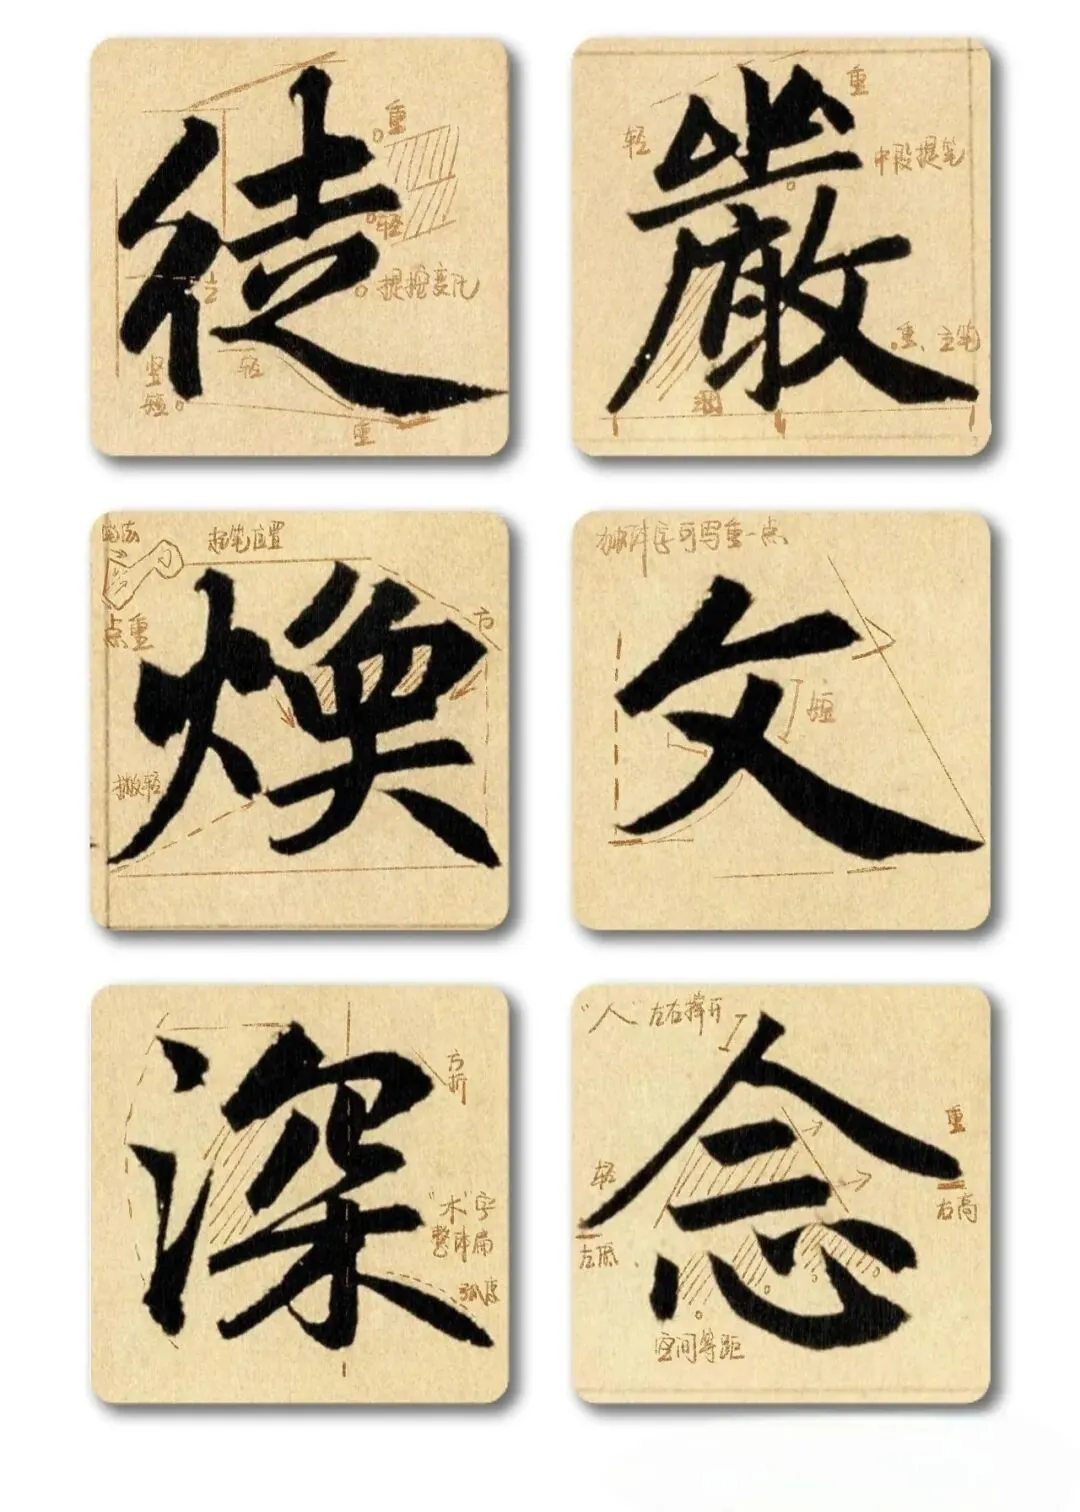 徒
重
轻
提按变化
竖
短
轻
重
嚴
重
轻
中段提笔
重、主笔
煥
起笔位置
点重
方
撇轻
文
独体字可写重一点
短
深
方
折
"木"字
整体扁
弧度
念
"人"左右撑开
重
右高
轻
左低
空间等距